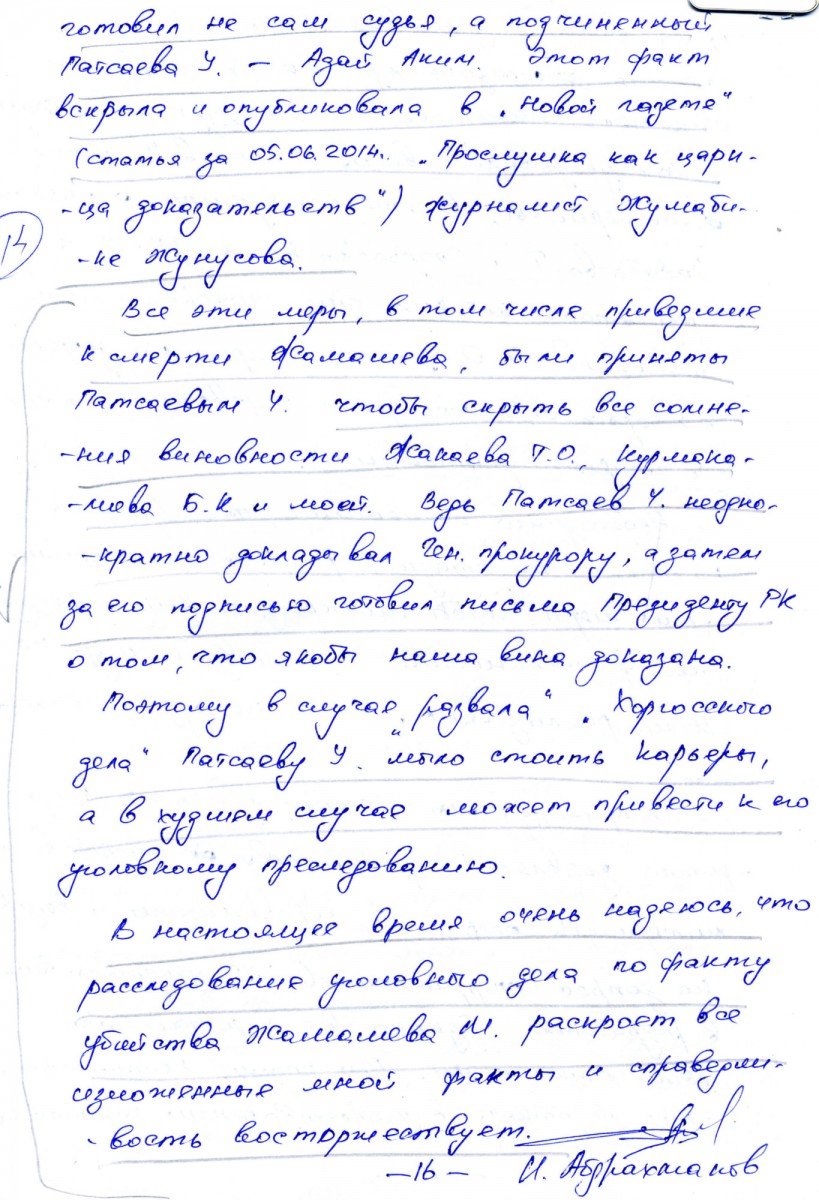 готовил не сам судья, а подчиненный
Патсаева У. – Адай Аким. Этот факт
вскрыла и опубликовала в „Новой газете“
(статья за 05.06.2014г. „Прослушка как цари-
-ца доказательств“) журналист Жумаби-
14
-ке Жунусова.
Все эти меры, в том числе приведшие
к смерти Жамашева, были приняты
Патсаевым У. чтобы скрыть все сомне-
-ния виновности Жакаева Т.О., Курмана-
-лиева Б.К и моей. Ведь Патсаев У. неодно-
-кратно докладывал Ген. прокурору, а затем
за его подписью готовил письма Президенту РК
о том, что якобы наша вина доказана.
Поэтому в случае „развала“ „Хоргосского
дела“ Патсаеву У. стоить карьеры,
а в худшем случае может привести к его
уголовному преследованию.
В настоящее время очень надеюсь, что
расследование уголовного дела по факту
убийства Жамашева М. раскроет все
изложенные мной факты и справедли-
-вость восторжествует.
–16– И. Абдрахманов